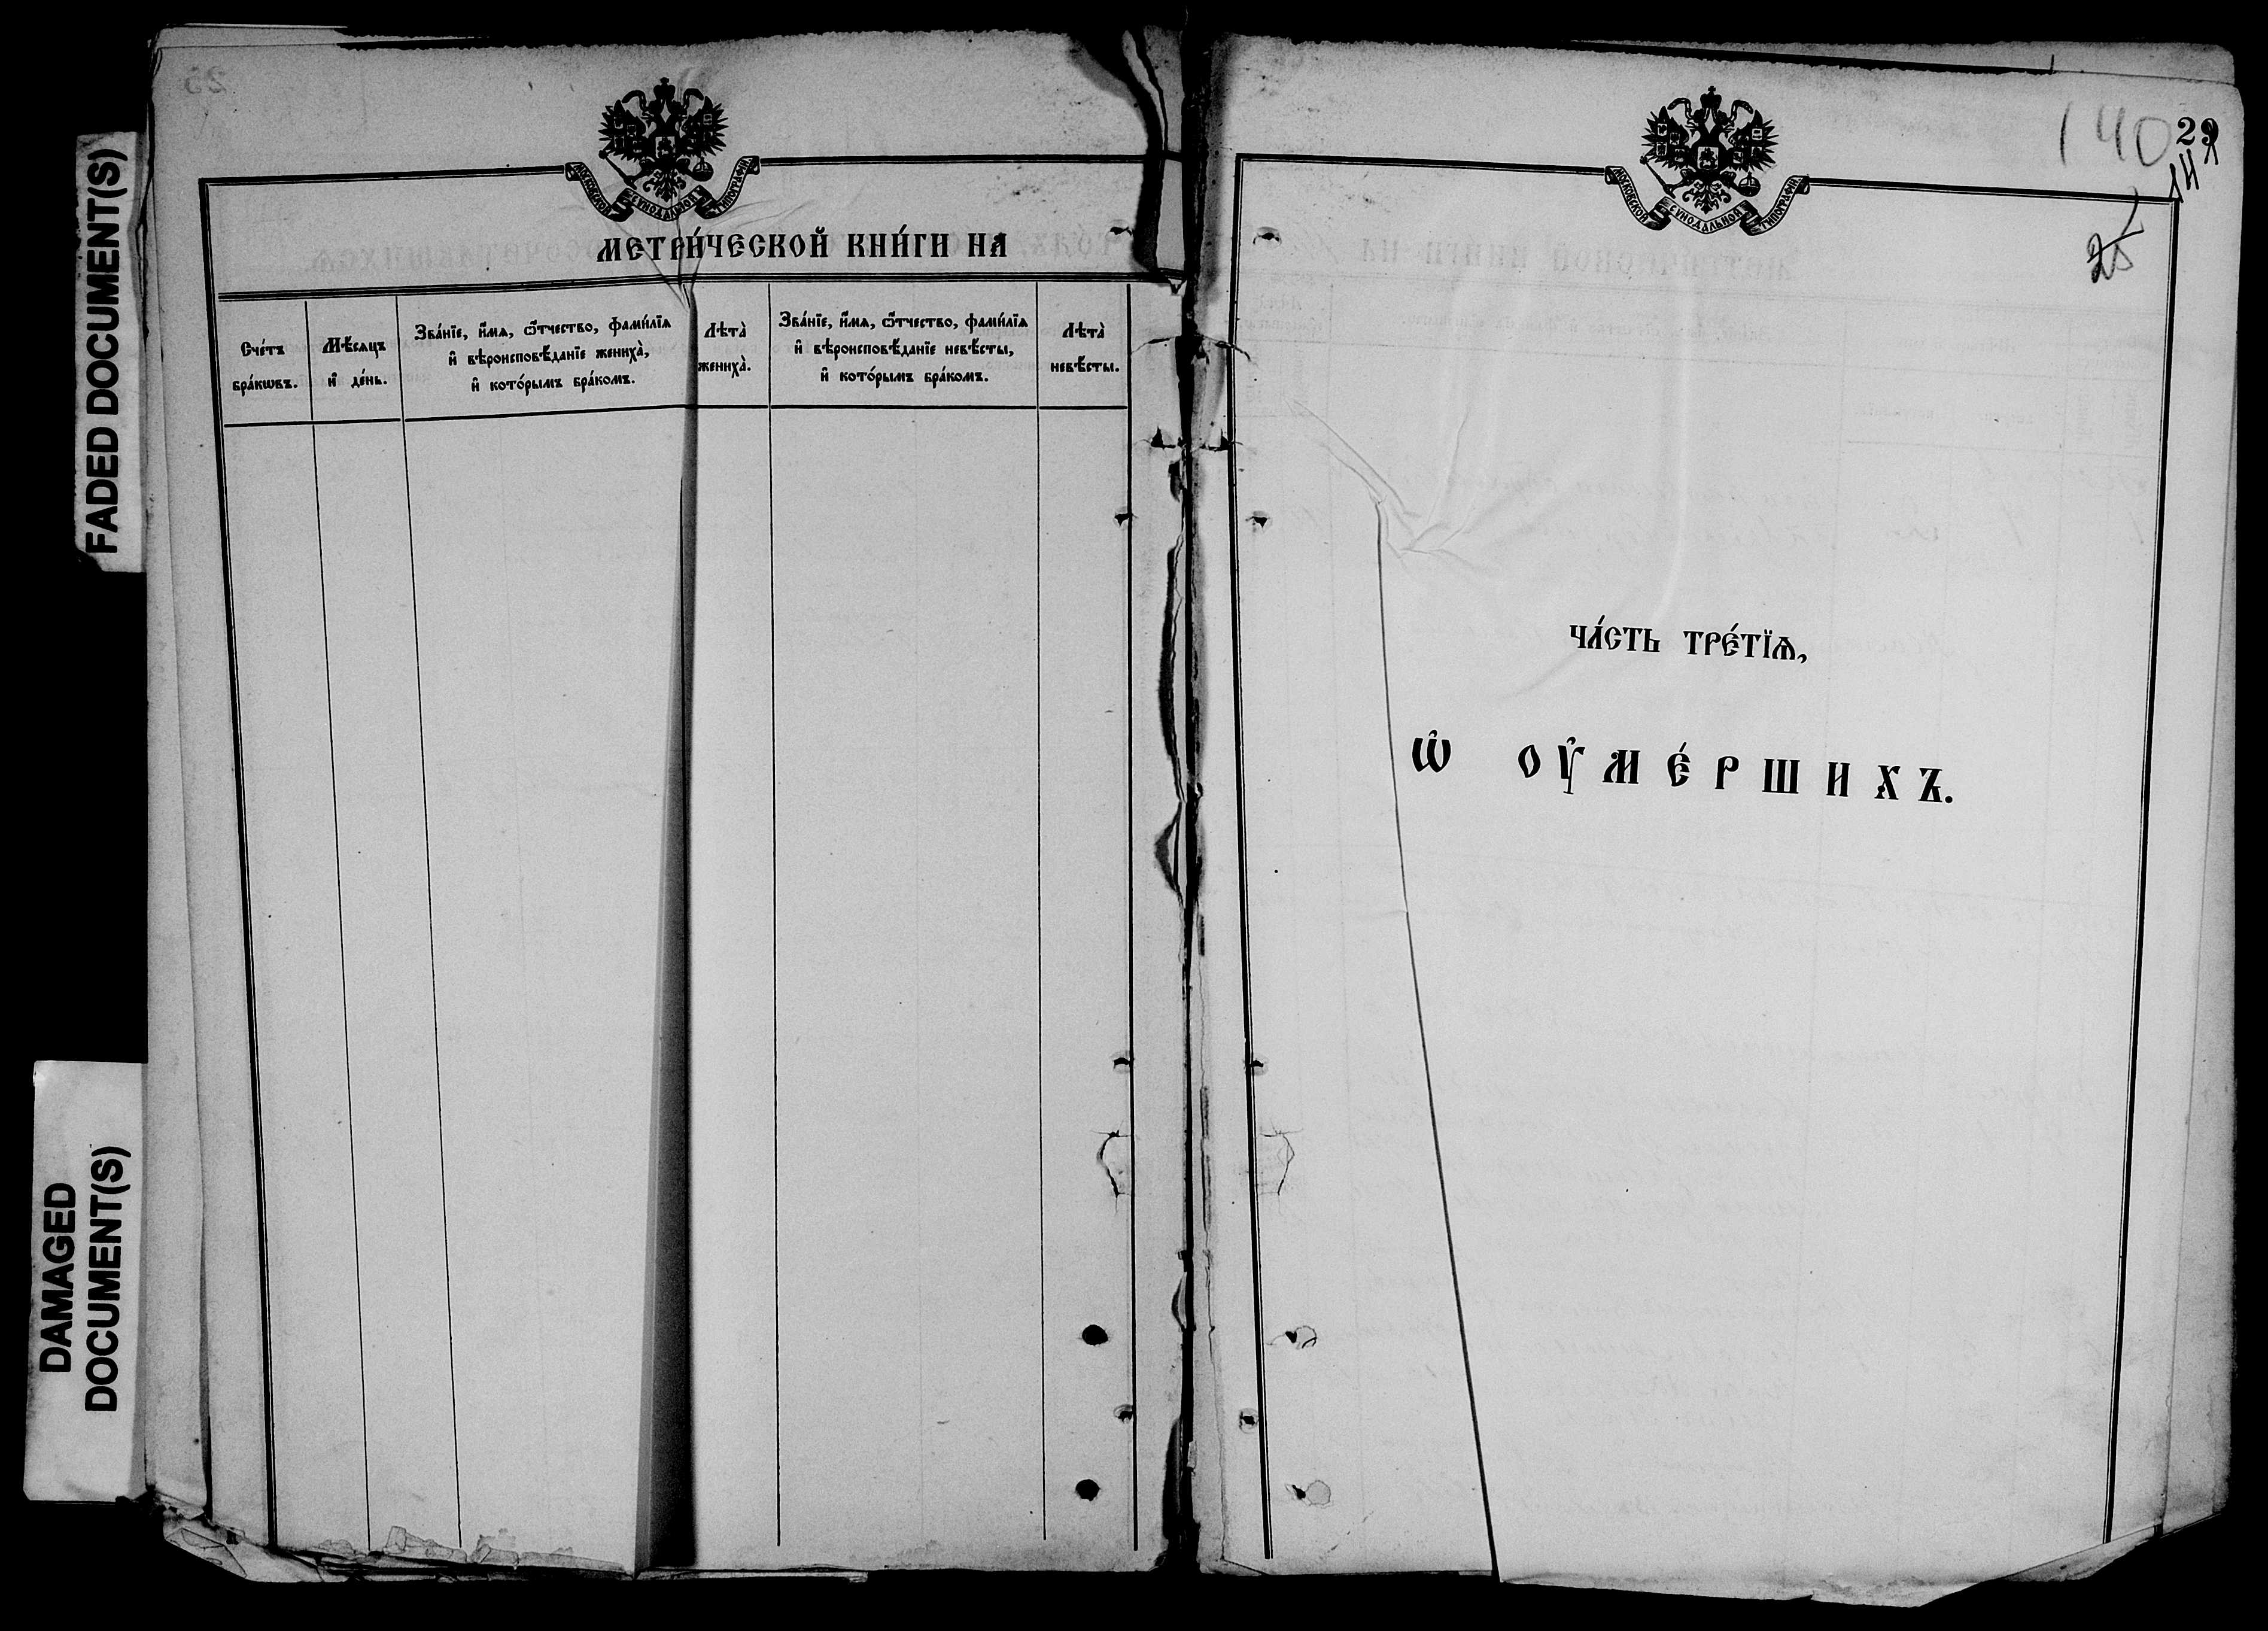 FADED DOCUMENT(S)
DAMAGED
DOCUMENT(S)
МОСКОВСКОЙ СѴНОДАЛЬНОЙ ТИПОГРАФІИ
МЕТРИ́ЧЕСКОЙ КНИ́ГИ НА
Сче́тъ
бра́кѡвъ.
Мѣ́сяцъ
и҆ де́нь.
Зва́нїе, и҆́мѧ, ѻ҆́тчество, фами́лїѧ
и҆ вѣроисповѣ́данїе жениха̀,
и҆ кото́рымъ бра́комъ.
Лѣта̀
жениха̀.
Зва́нїе, и҆́мѧ, ѻ҆́тчество, фами́лїѧ
и҆ вѣроисповѣ́данїе невѣ́сты,
и҆ кото́рымъ бра́комъ.
Лѣта̀
невѣ́сты.
МОСКОВСКОЙ СѴНОДАЛЬНОЙ ТИПОГРАФІИ
140
25
ЧА́СТЬ ТРЕ́ТЇѦ,
Ѡ҆ ОУ҆МЕ́РШИХЪ.